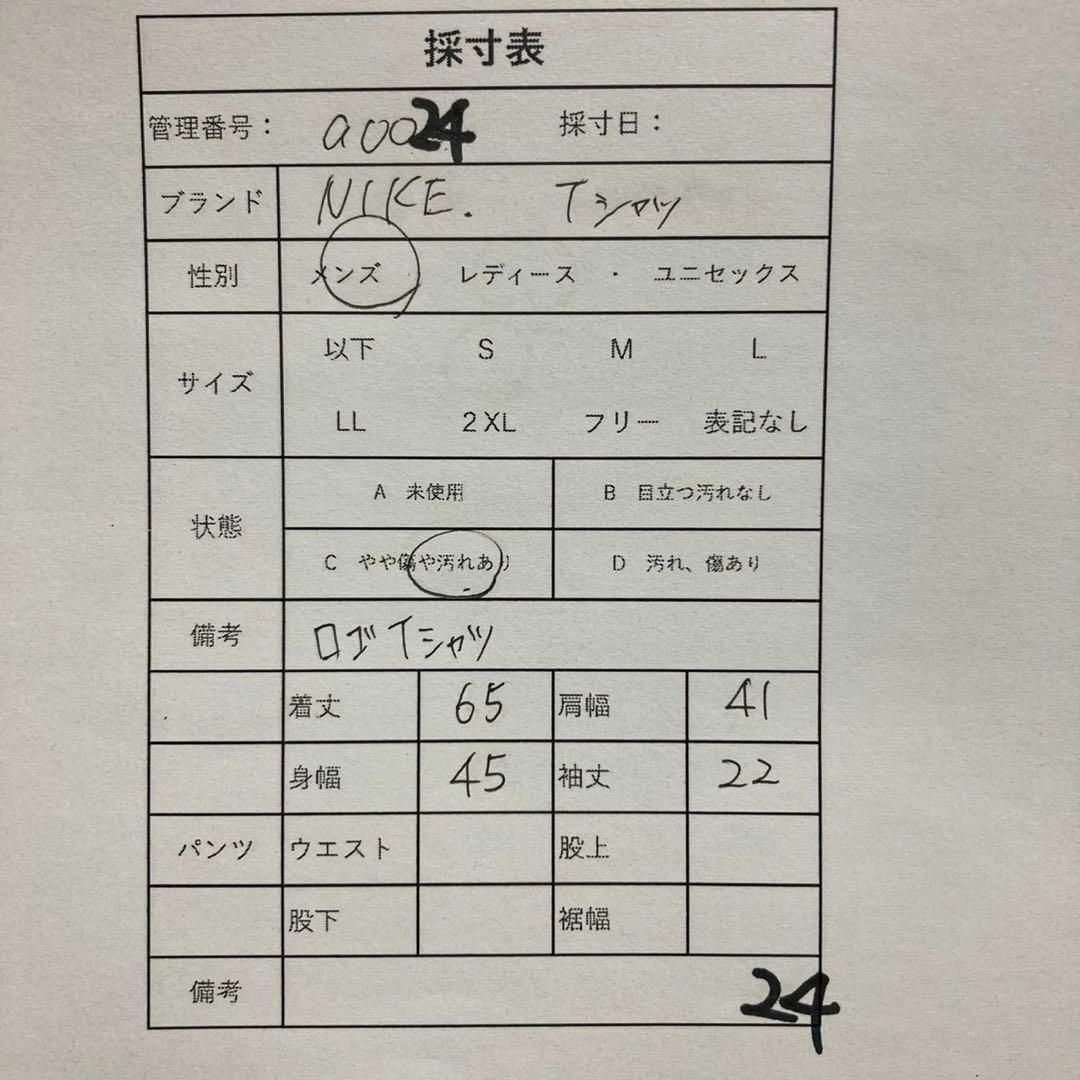 採寸表
管理番号： a0024 採寸日：
ブランド NIKE. Tシャツ
性別 メンズ レディース ・ ユニセックス
サイズ 以下 S M L
LL 2XL フリー 表記なし
状態 A 未使用 B 目立つ汚れなし
C やや傷や汚れあり D 汚れ、傷あり
備考 ロゴTシャツ
着丈 65 肩幅 41
身幅 45 袖丈 22
パンツ ウエスト 股上
股下 裾幅
備考 24